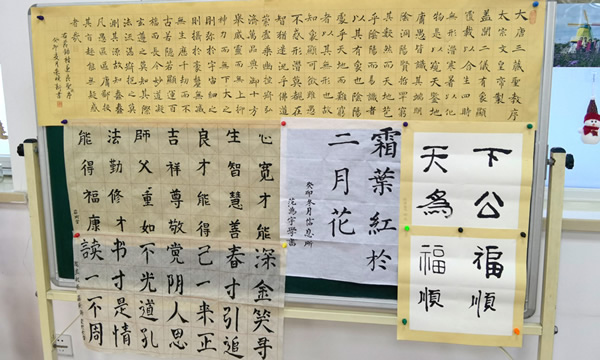 大唐三藏聖教序
太宗文皇帝製
蓋聞二儀有象顯
覆載以含生四時
無形潛寒暑以化
物是以窺天鑒地
庸愚皆識其端明
陰洞陽賢哲罕窮
其數然而天地苞
乎陰陽而易識者
以其有象也陰陽
處乎天地而難窮
者以其無形也故
知象顯可徵雖愚
不惑形潛莫覩在
智猶迷況乎佛道
崇虛乘幽控寂弘
濟萬品典御十方
舉威靈而無上抑
神力而無下大之
則彌於宇宙細之
則攝於毫釐無滅
無生歷千劫而不
古若隱若顯運百
福而長今妙道凝
玄遵之莫知其際
法流湛寂挹之莫
測其源故知蠢蠢
凡愚區區庸鄙投
其旨趣能無疑惑
者哉
下公
天為
福順
福順
霜葉紅於
二月花
心寬才能
生智慧善
良才能得
吉祥尊敬
師父重如
法勤修才
能得福康
深金笑哥
春寸引追
己一来正
党阴人思
不光道孔
书寸是情
读一不周